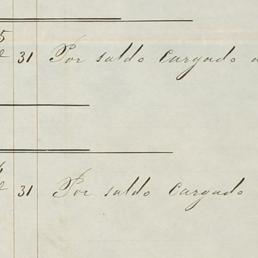 31 Por saldo cargado
31 Por saldo cargado